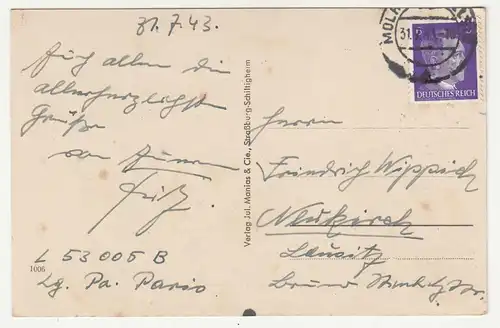 31.7.43.
Euch allen die
allerherzlichsten
Grüße
von Eurem
Fritz.
L 53 005 B
Lg. Pa. Paris
1006
Verlag Jul. Manias & Cie., Straßburg-Schiltigheim
MOL
31.
DEUTSCHES REICH
Herrn
Friedrich Wippich
Neukirch
Lausitz
Bruno